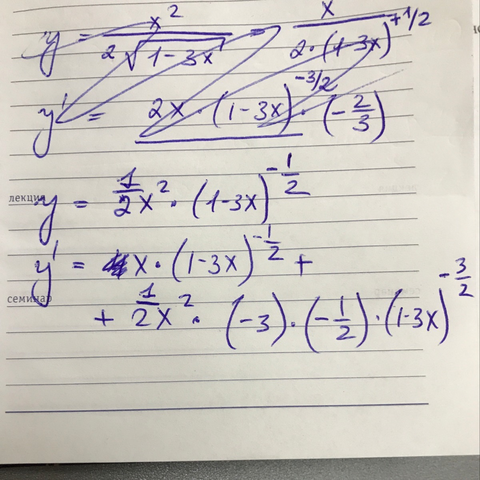 y = x² / 2√(1-3x) = x / 2·(1-3x)^+1/2
y' = 2x·(1-3x)^-3/2 · (-2/3)
лекция
y = 1/2 x² · (1-3x)^-1/2
y' = x·(1-3x)^-1/2 +
семинар
+ 1/2 x² · (-3)·(-1/2)·(1-3x)^-3/2